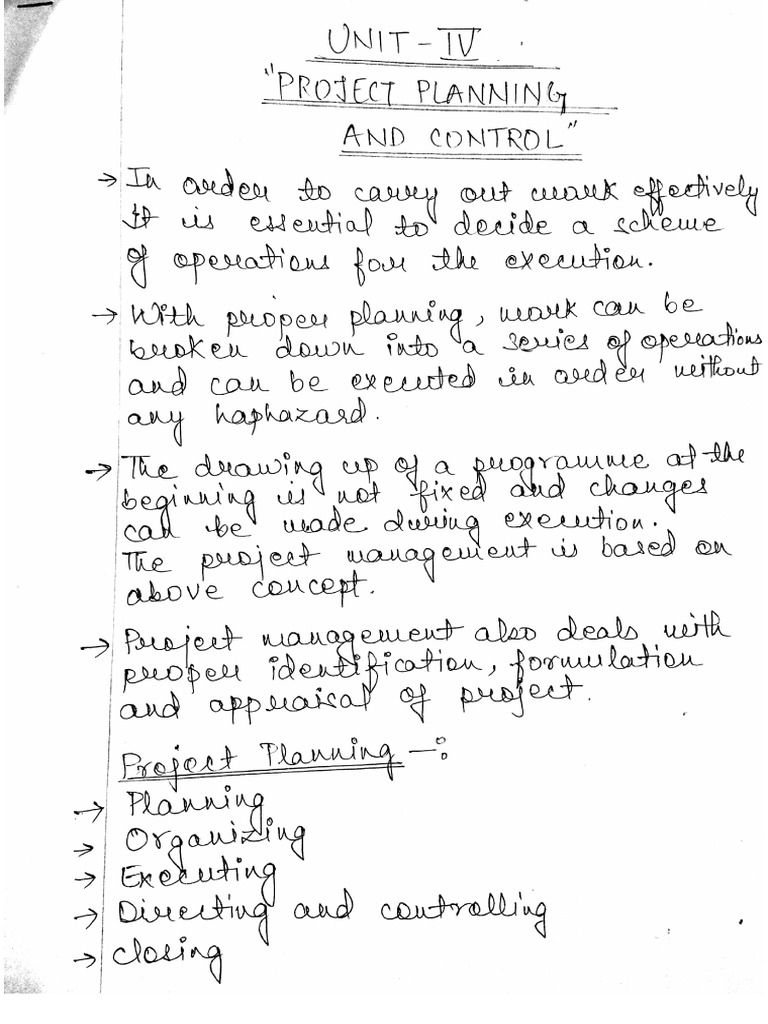 UNIT - IV
"PROJECT PLANNING
AND CONTROL"
→ In order to carry out work effectively
It is essential to decide a scheme
of operations for the execution.
→ With proper planning, work can be
broken down into a series of operations
and can be executed in order without
any haphazard.
→ The drawing up of a programme at the
beginning is not fixed and changes
can be made during execution.
The project management is based on
above concept.
→ Project management also deals with
proper identification, formulation
and appraisal of project.
Project Planning -:
→ Planning
→ Organizing
→ Executing
→ Directing and controlling
→ closing